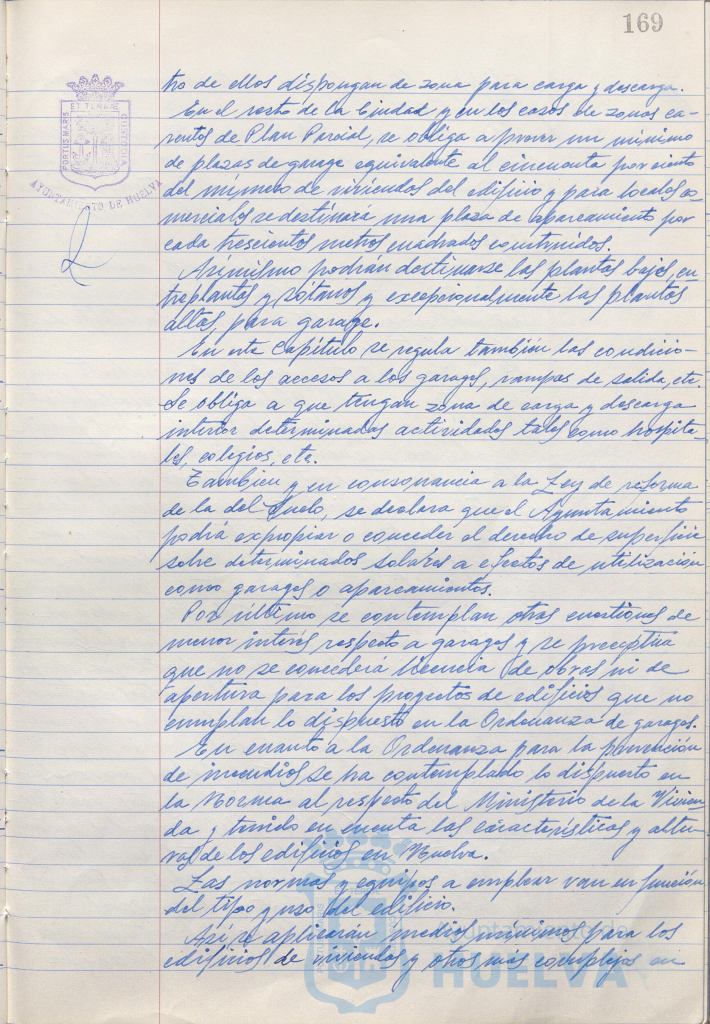 169
PORTUS MARIS
ET TERRAE
CUSTODIA
AYUNTAMIENTO DE HUELVA
tro de ellos dispongan de zona para carga y descarga.
En el resto de la Ciudad y en los casos de zonas ca-
rentes de Plan Parcial, se obliga a prever un mínimo
de plazas de garage equivalente al cincuenta por ciento
del número de viviendas del edificio y para locales co-
merciales se destinará una plaza de aparcamiento por
cada trescientos metros cuadrados construidos.
Asimismo podrán destinarse las plantas bajas, en-
treplantas y sótanos y excepcionalmente las plantas
altas, para garage.
En este Capítulo se regula también las condicio-
nes de los accesos a los garages, rampas de salida, etc.
Se obliga a que tengan zona de carga y descarga
interior determinadas actividades tales como hospita-
les, colegios, etc.
También y en consonancia a la Ley de reforma
de la del Suelo, se declara que el Ayuntamiento
podrá expropiar o conceder el derecho de superficie
sobre determinados solares a efectos de utilización
como garages o aparcamientos.
Por último se contemplan otras cuestiones de
menor interés respecto a garages y se preceptúa
que no se concederá licencia de obras ni de
apertura para los proyectos de edificios que no
cumplan lo dispuesto en la Ordenanza de garages.
En cuanto a la Ordenanza para la prevención
de incendios se ha contemplado lo dispuesto en
la Norma al respecto del Ministerio de la Vivien-
da y tenido en cuenta las características y altu-
ras de los edificios en Huelva.
Las normas y equipos a emplear van en función
del tipo y uso del edificio.
Así se aplicarán medios mínimos para los
edificios de viviendas y otros más complejos en
Ayuntamiento de
HUELVA